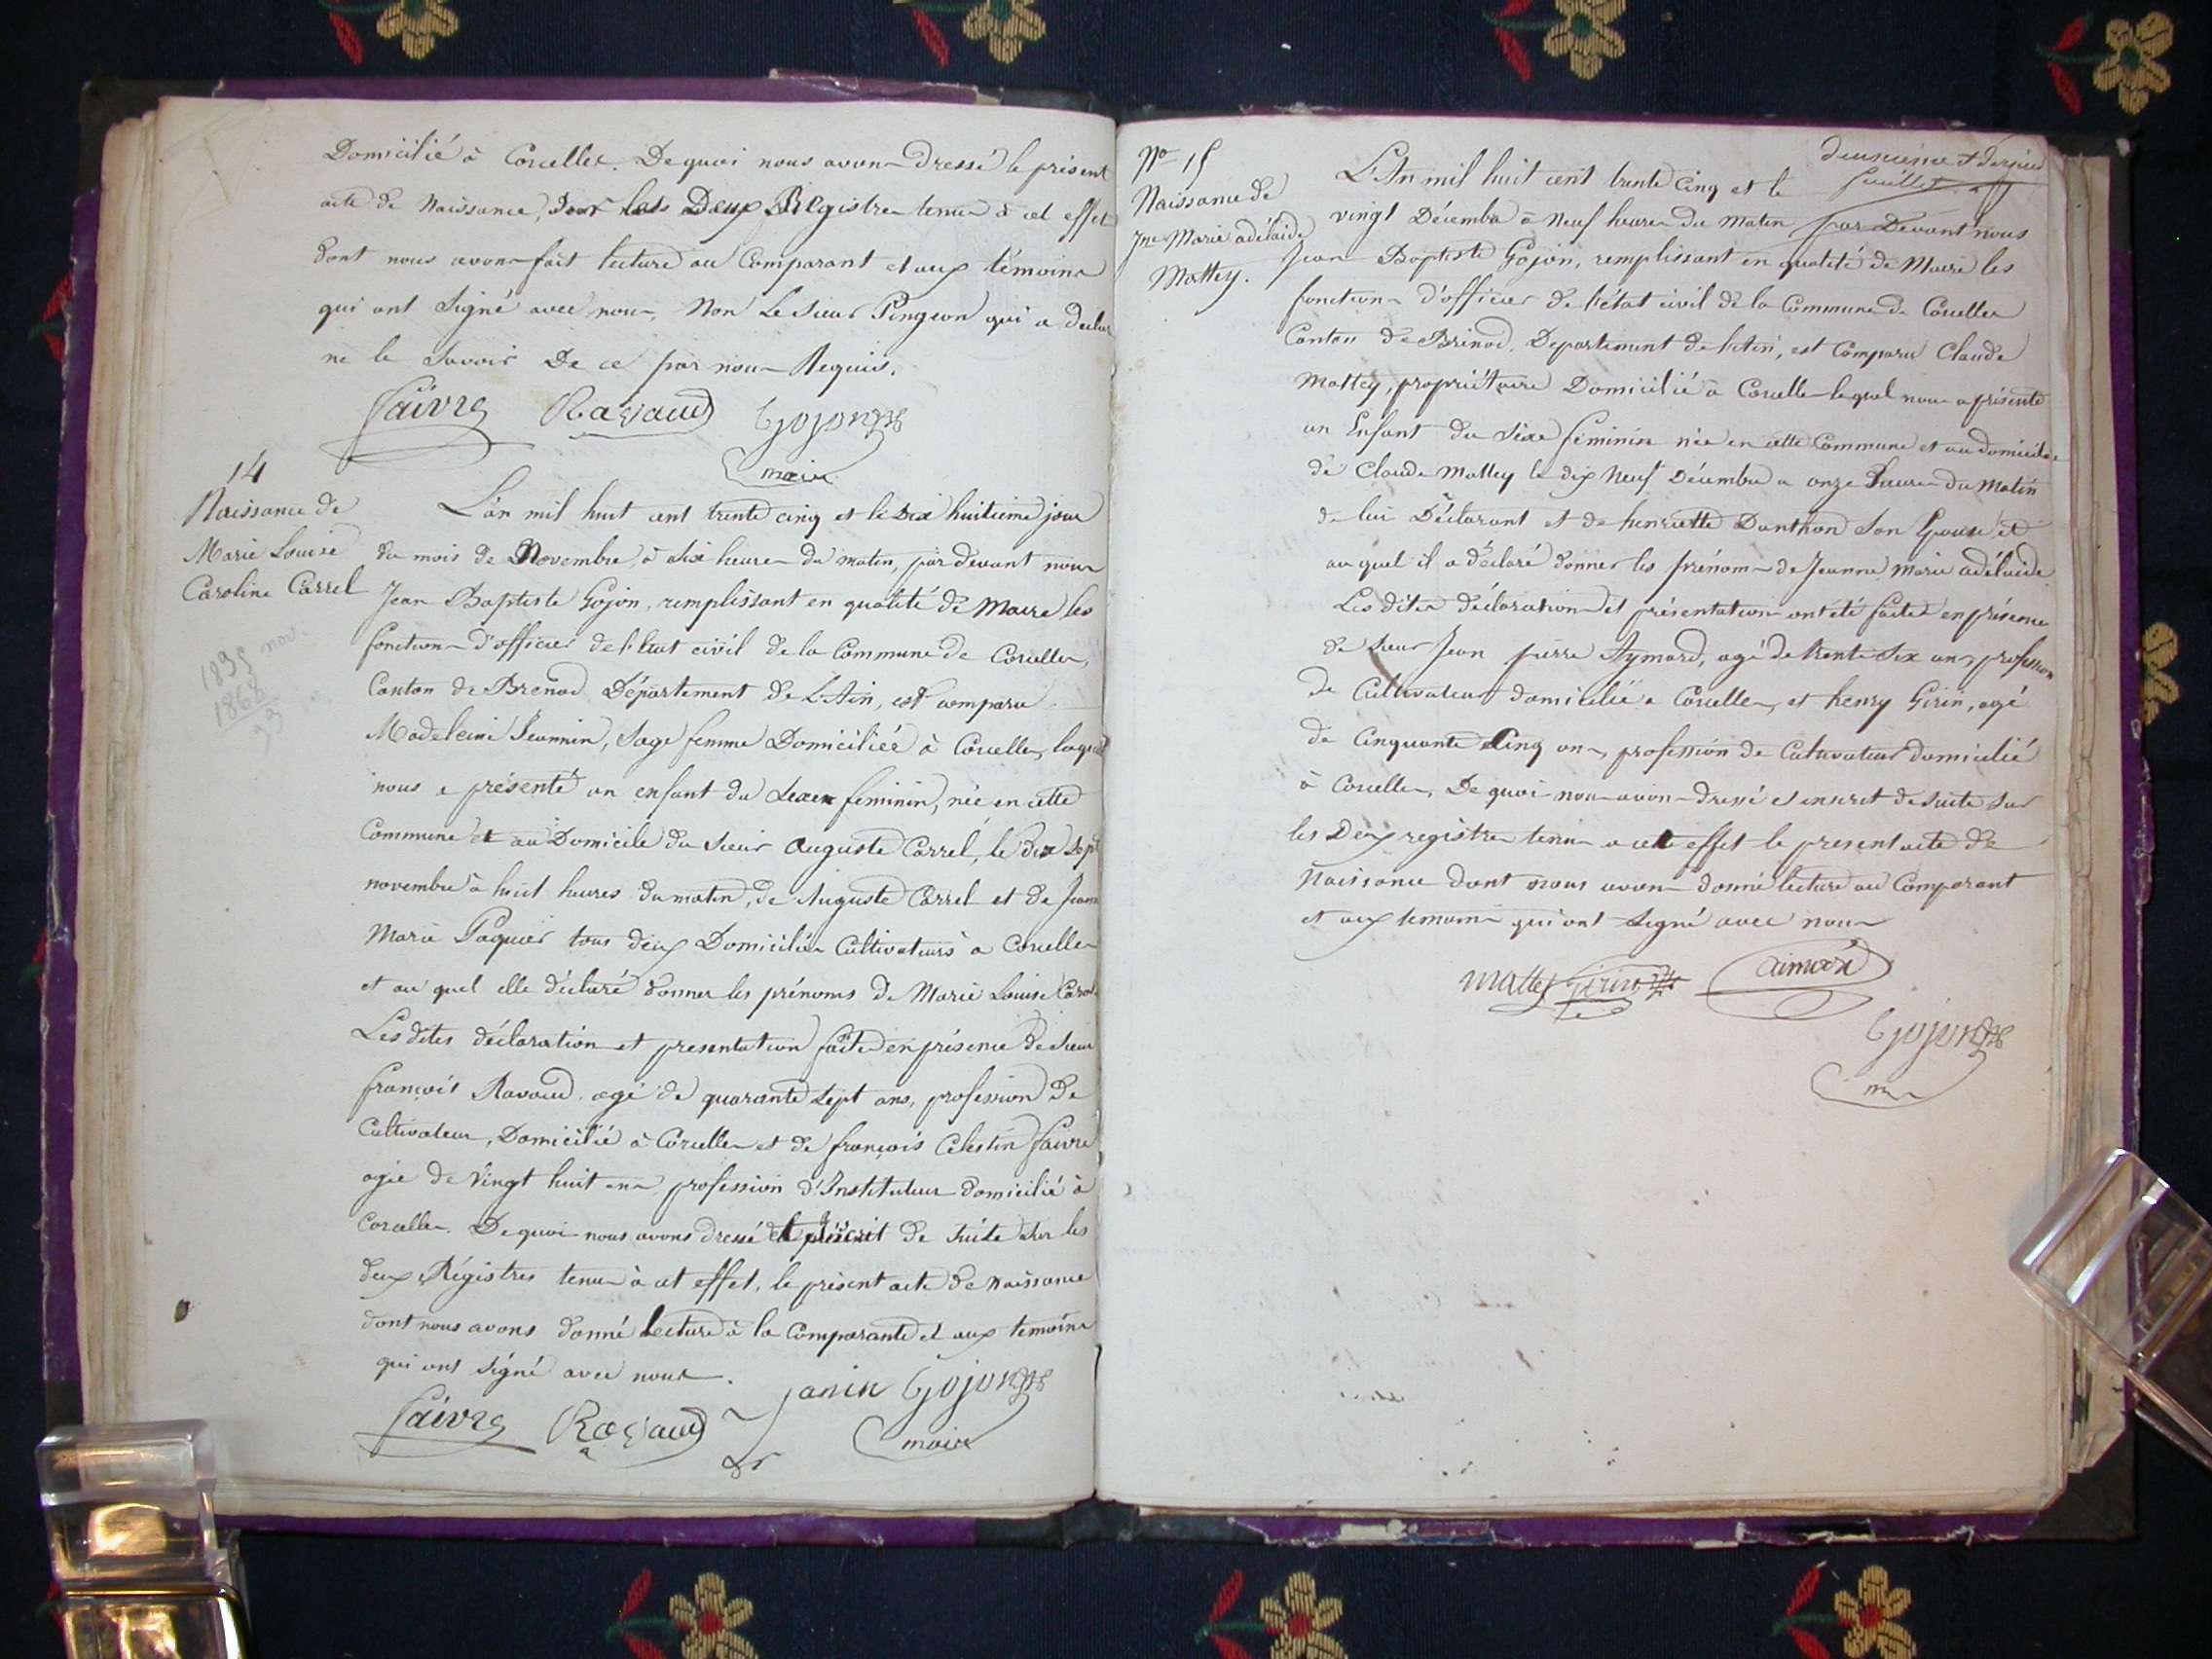 Domicilié à Corcelles. De quoi nous avons dressé le présent
acte de Naissance, sur les Deux Registres tenus à cet effet
dont nous avons fait lecture au Comparant et aux témoins
qui ont Signé avec nous, Non Le Sieur Pingeon qui a déclaré
ne le Savoir De ce par nous Requis.
Faivre Ravaud Gojon
maire
14
Naissance de
Marie Louise
Caroline Carrel
1835 nov.
1868
33
L'an mil huit cent trente cinq et le Dix huitieme jour
du mois de Novembre, à Six heures du matin, par devant nous
Jean Baptiste Gojon, remplissant en qualité de Maire les
fonctions d'officier de l'Etat civil de la Commune de Corcelles,
Canton de Brenod Département de L'Ain, est comparu
Madeleine Jeannin, Sage femme Domiciliée à Corcelles, laquel
nous a présenté un enfant du Sexe feminin, née en cette
Commune et au Domicile du Sieur Auguste Carrel, le dix Sept
novembre à huit heures du matin, de Auguste Carrel et de Jeanne
Marie Paquier tous deux Domiciliés Cultivateurs à Corcelles
et au quel elle déclaré donner les prénoms de Marie Louise Carol.
Les dites déclaration et presentation faite en présence de Sieur
françois Ravaud, agé de quarante Sept ans, profession de
Cultivateur, Domicilié à Corcelles et de françois Célestin faivre
agé de Vingt huit ans profession d'Instituteur domicilié à
Corcelles. De quoi nous avons dressé et inscrit de Suite Sur les
deux Régistres tenus à cet effet, le présent acte de naissance
dont nous avons donné lecture à la Comparante et aux temoins
qui ont Signé avec nous.
Faivre Ravaud janin Gojon
maire
deuxième et dernier
feuillet
No 15
Naissance de
Jne Marie adélaide
Mattey.
L'An mil huit cent trente Cinq et le
vingt Décembre à Neuf heures du Matin par Devant nous
Jean Baptiste Gojon, remplissant en qualité de Maire les
fonctions d'officier de l'état civil de la Commune de Corcelles
Canton de Brénod, Departement de l'Ain, est Comparu Claude
Mattey, propriétaire Domicilié à Corcelles lequel nous a présenté
un Enfant du Sexe féminin née en cette Commune et au domicile
de Claude Mattey le dix Neuf Décembre a onze heures du Matin
de lui Déclarant et de henriette Danthon Son Epouse, et
au quel il a déclaré donner les prénoms de Jeanne Marie adélaide
Les dites déclaration et présentation ont été faites en présence
de Sieur Jean pierre Aymard, agé de trente Six ans, profession
de Cultivateur domicilié a Corcelles, et henry Girin, agé
de Cinquante Cinq ans, profession de Cultivateur domicilié
à Corcelles, De quoi nous avons dressé et inscrit de Suite sur
les Deux registres tenus a cet effet le present acte de
Naissance dont nous avons donné lecture au Comparant
et aux temoins qui ont Signé avec nous
Mattey girin aimard
Gojon
m